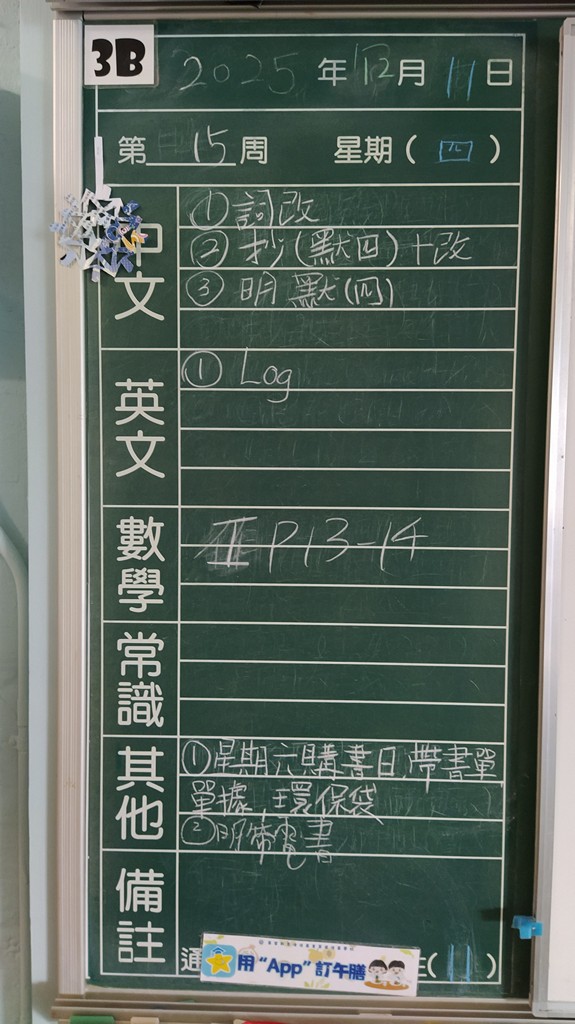 3B
2025年12月11日
第15周 星期(四)
中文
① 詞改
② 抄(默四)+改
③ 明默(四)
英文
① Log
數學
II P13-14
常識
其他
①星期六購書日,帶書單
單據,環保袋
②明帶電書
備註
通
用“App”訂午膳
(11)